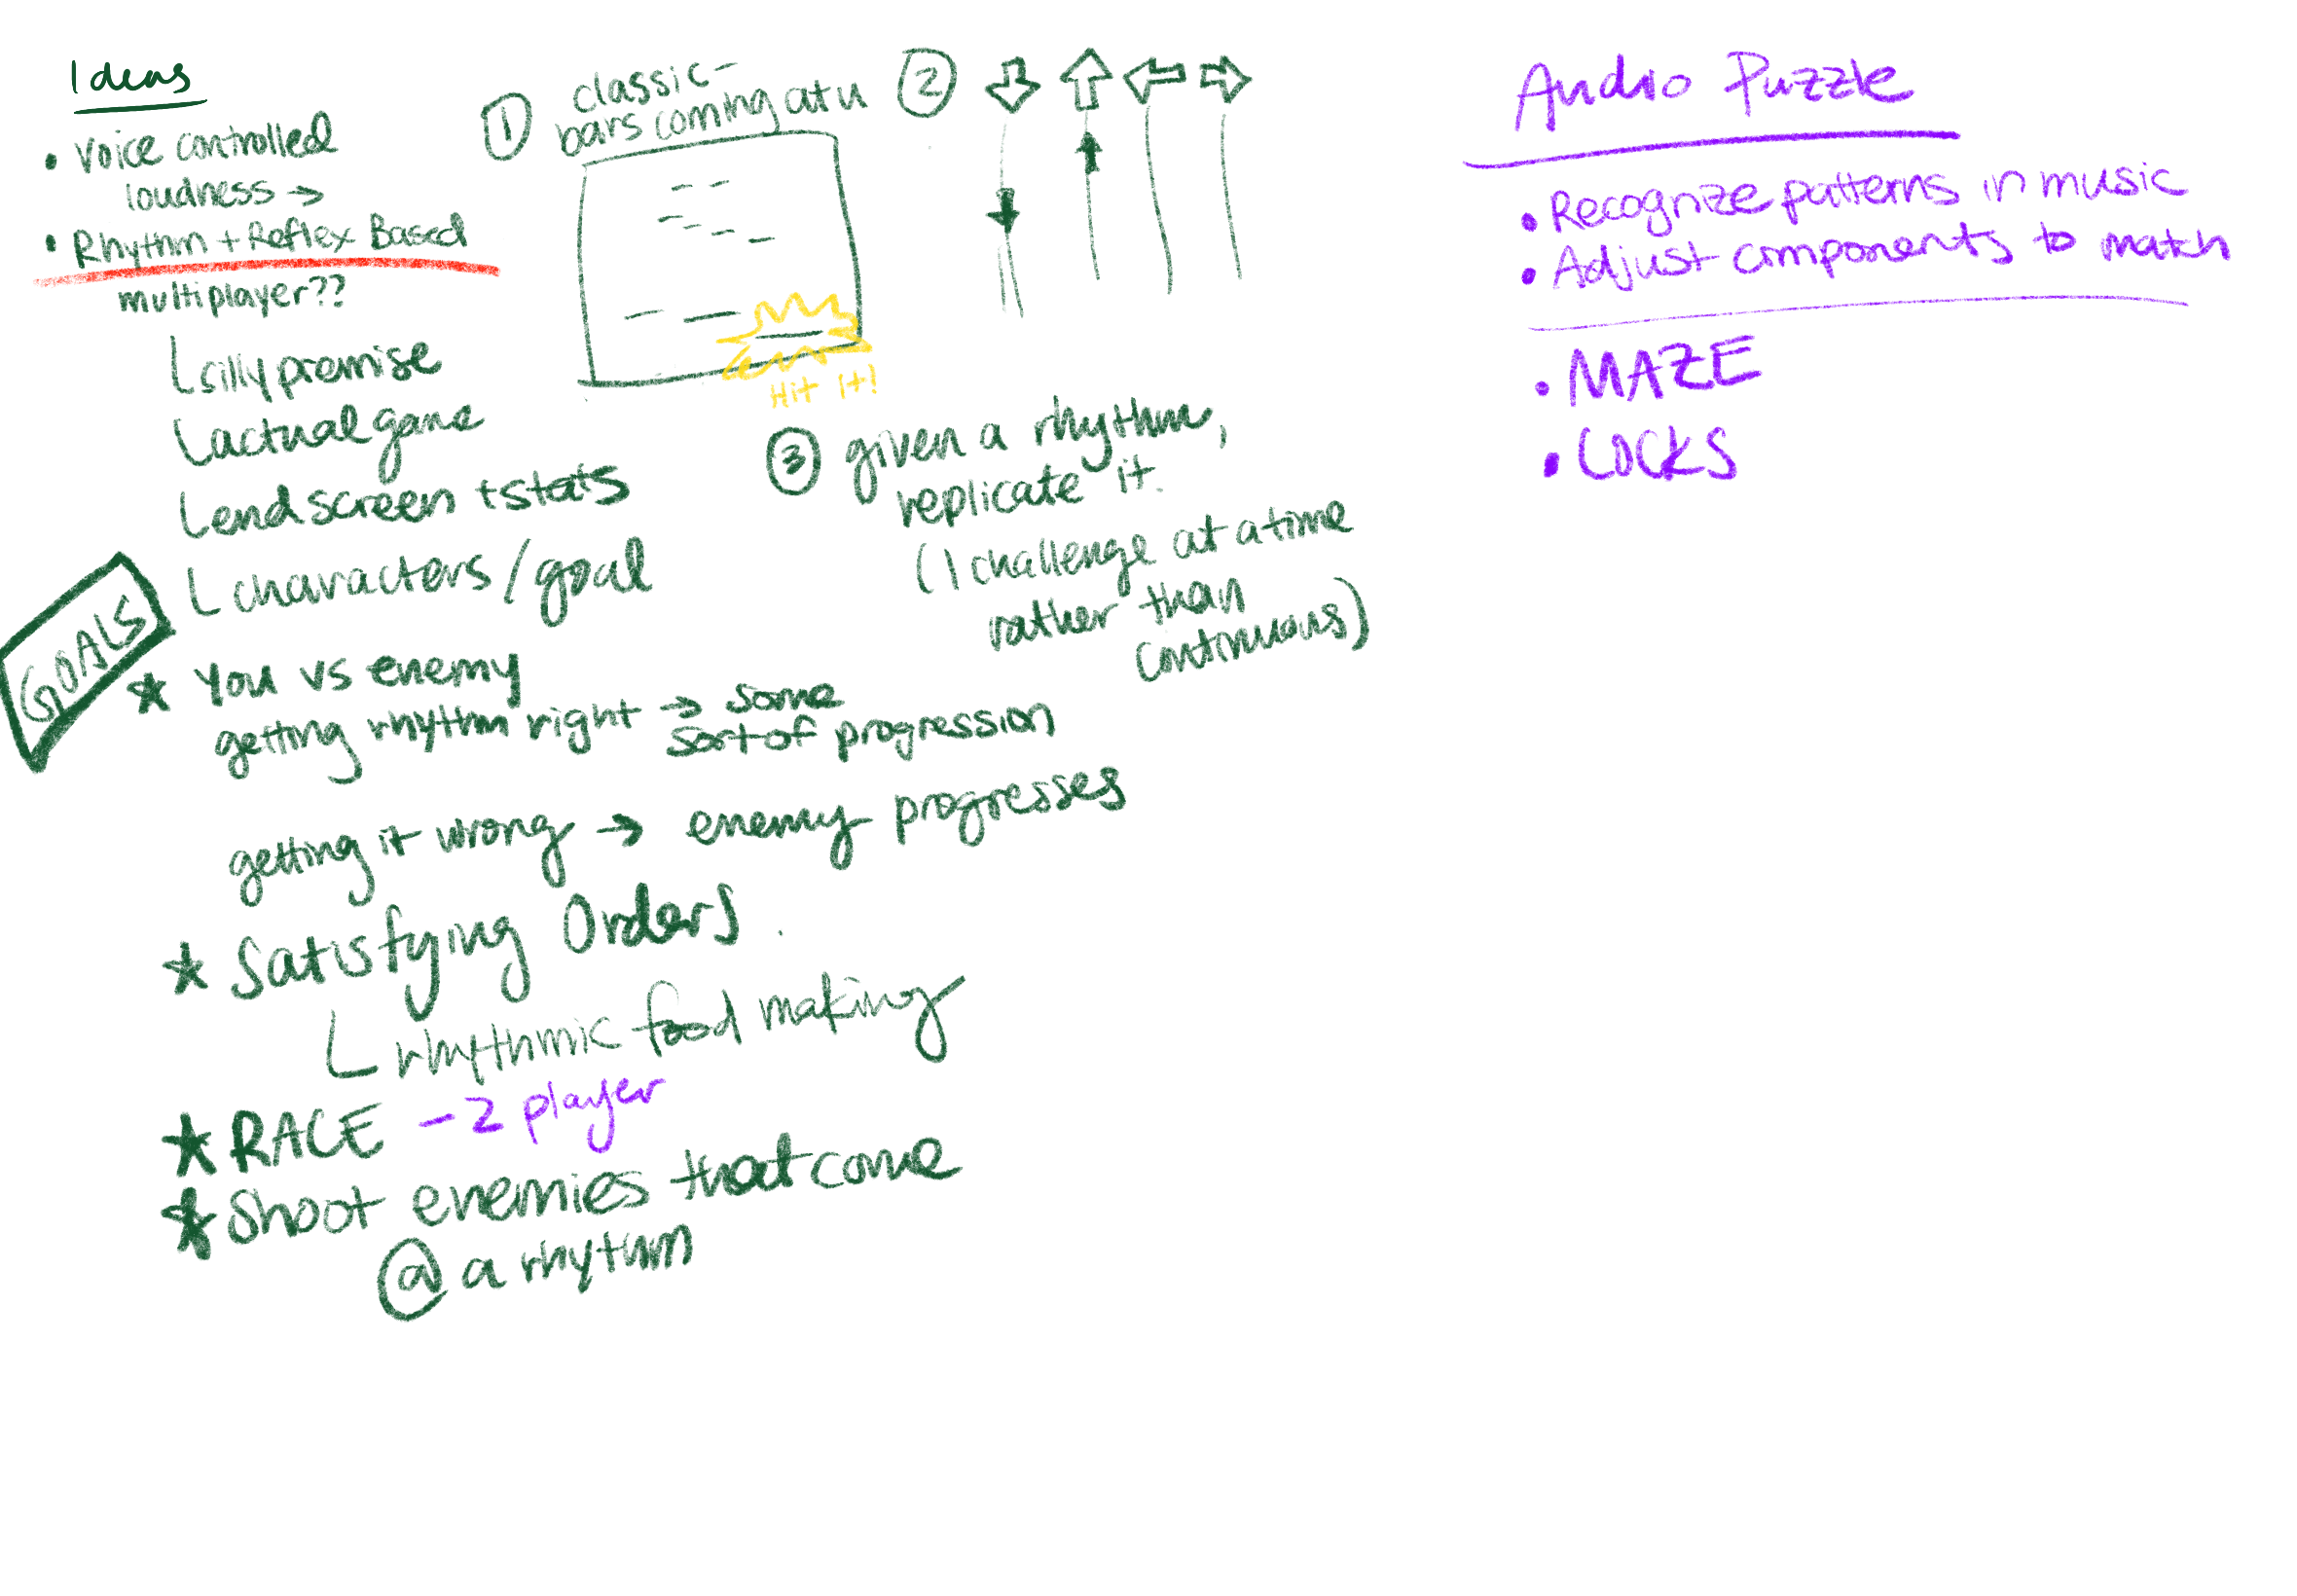 Ideas
• Voice controlled
loudness →
• Rhythm + Reflex Based
multiplayer??
silly premise
actual game
end screen + stats
characters / goal
① classic -
bars coming at u
Hit It!
②
③ given a rhythm,
replicate it.
(1 challenge at a time
rather than
continuous)
GOALS
★ You vs enemy
getting rhythm right → some
sort of progression
getting it wrong → enemy progresses
★ Satisfying Orders
rhythmic food making
★ RACE - 2 player
★ Shoot enemies that come
@ a rhythm
Audio Puzzle
• Recognize patterns in music
• Adjust components to match
• MAZE
• LOCKS